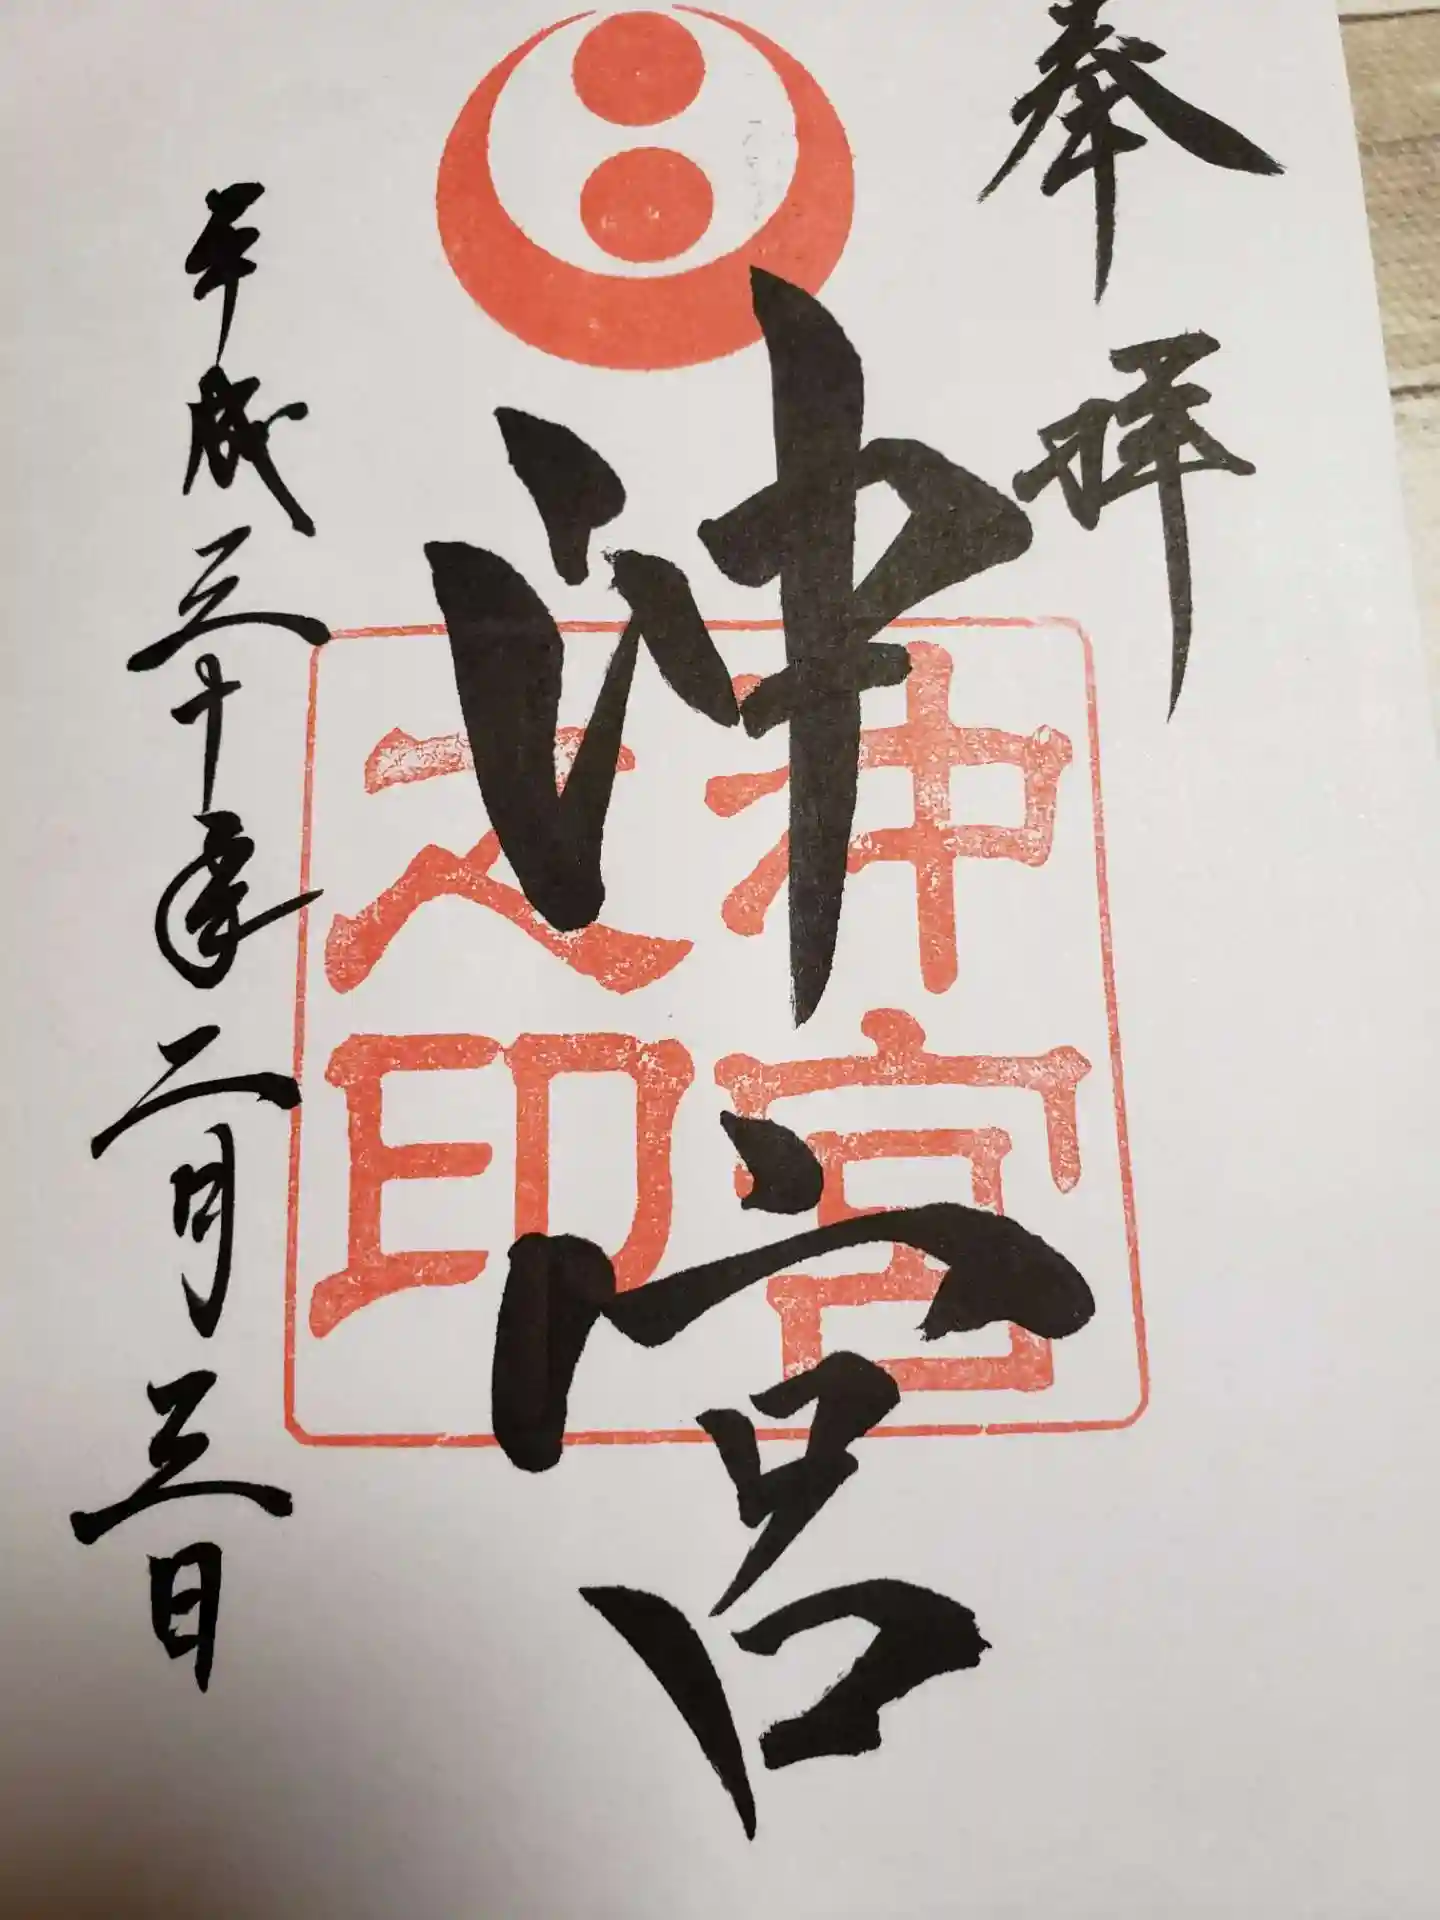 奉拝
沖宮
沖宮
之印
平成三十年二月三日